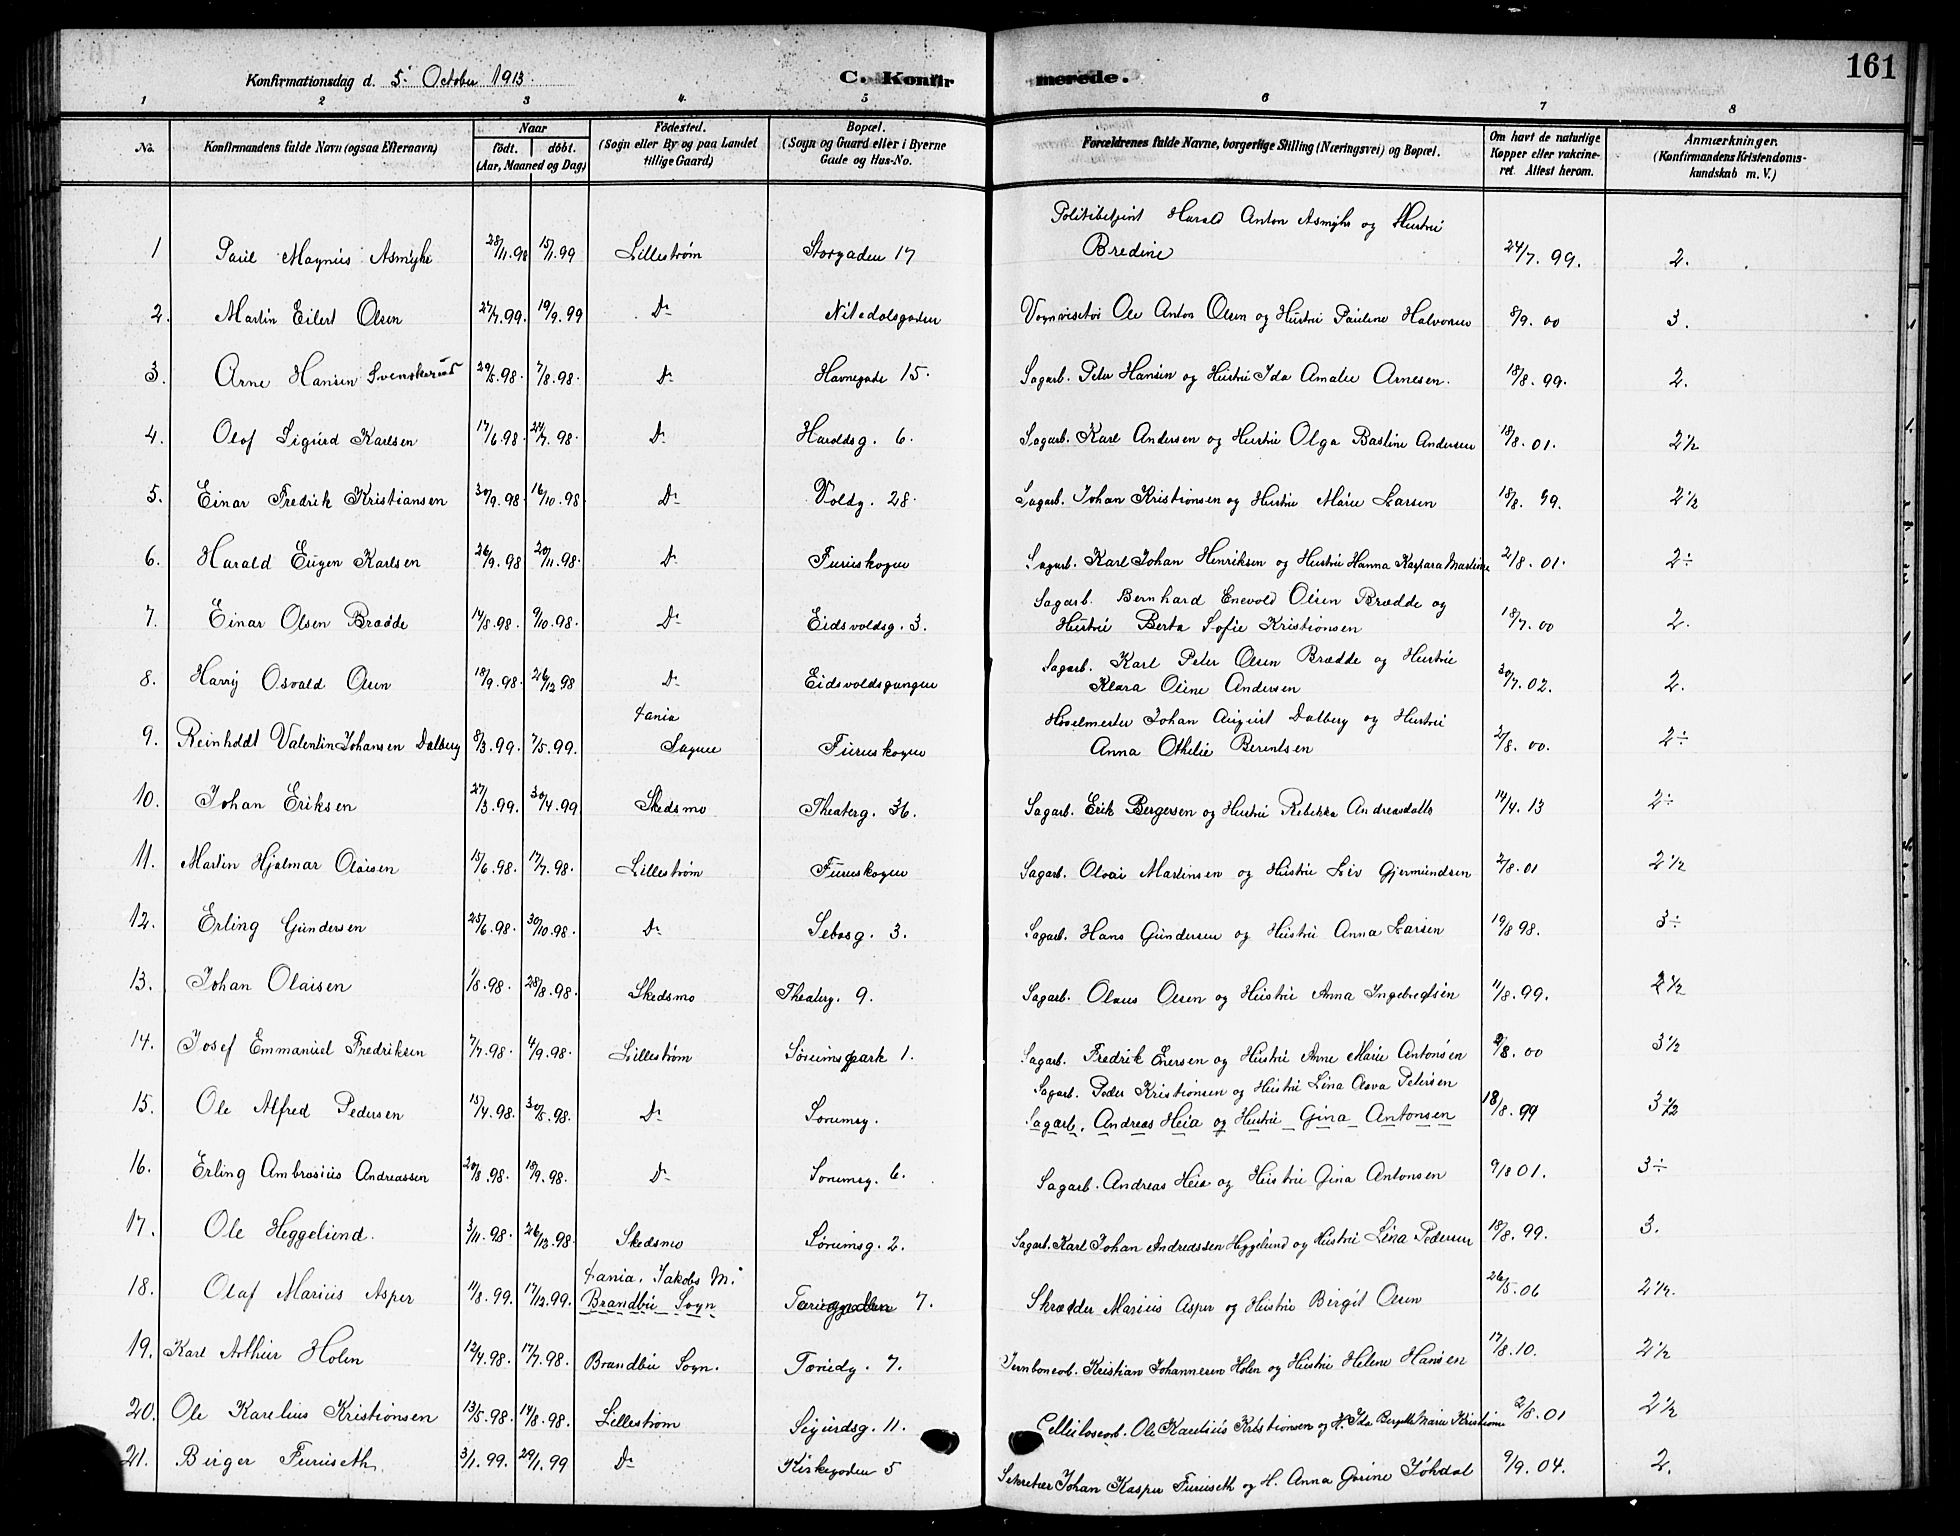 161
Konfirmationsdag d. 5. October 1913. C. Konfirmerede.
1 2 3 4. 5 6 7 8
No. Konfirmandens fulde Navn (ogsaa Efternavn) Naar født. døbt. (Aar, Maaned og Dag) Fødested. (Sogn eller By og paa Landet tillige Gaard) Bopæl. (Sogn og Gaard eller i Byerne Gade og Hus-No. Forældrenes fulde Navne, borgerlige Stilling (Næringsvei) og Bopæl. Om havt de naturlige Kopper eller vakcineret. Attest herom. Anmærkninger. (Konfirmandens Kristendomskundskab m. V.)
Politibetjent Harald Anton Asmyhr og Hustru
1 Paul Magnus Asmyhr 28/11.98 15/1.99 Lillestrøm Storgaden 17 Bredine 24/7.99. 2.
2. Martin Eilert Olsen 27/7.99. 19/9.99 Do Nitedalsgaden Ole Anton Olsen og Hustru Pauline Halvorsen 8/9.00 3.
3. Arne Hansen Svenskerud 29/5.98. 7/8.98. Do Havnegade 15. Sagarb. Peter Hansen og Hustru Ida Amalie Arnesen. 18/8.99. 2.
4. Olaf Sigurd Karlsen 17/6.98. 24/7.98. Do Haraldsg. 6. Sagarb. Karl Andersen og Hustru Olga Bastine Andersen 18/8.01. 2½
5. Einar Fredrik Kristiansen 30/9.98. 16/10.98. Do Voldg. 28. Sagarb. Johan Kristiansen og Hustru Marie Larsen 18/8.99. 2½
6. Harald Eugen Karlsen 26/9.98 20/11.98. Do Furuskogen Sagarb. Karl Johan Henriksen og Hustru Hanna Kaspara Martine 2/8.01. 2÷
Sagarb. Bernhard Enevold Olsen Brædde og
7. Einar Olsen Brædde 14/8.98. 9/10.98. Do Eidsvoldsg. 3. Hustru Berta Sofie Kristiansen 18/7.00 2.
Sagarb. Karl Peter Olsen Brædde og Hustru
8. Harry Osvald Olsen 18/9.98. 26/12 98 Do Eidsvoldsgangen Klara Oline Andersen 30/7.02. 2.
Fania Høvelmester Johan August Dalberg og Hustru
9. Reinholdt Valentin Johansen Dalberg 8/3.99. 7/5.99. Sagene Furuskogen Anna Othilie Berentsen 2/8.00. 2÷
10. Johan Eriksen 27/3.99. 30/4.99 Skedsmo Theaterg. 36. Sagarb. Erik Bergersen og Hustru Rebekka Andreasdatte 14/4.13 2÷
11. Martin Hjalmar Olaisen 15/6.98. 17/7.98. Lillestrøm Furuskogen Sagarb. Olai Martinsen og Hustru Liv Gjermundsen 2/8.01 2½
12. Erling Gundersen 25/6.98. 30/10.98. Do Sebosg. 3. Sagarb. Hans Gundersen og Hustru Anna Larsen 19/8 98. 3÷
13. Johan Olaisen 1/8.98. 28/8.98. Skedsmo Theaterg. 9. Sagarb. Olaus Olsen og Hustru Anna Ingebregtsen 11/8.99. 2½
14. Josef Emmanuel Fredriksen 7/7.98. 4/9.98. Lillestrøm Sørumspark 1. Sagarb. Fredrik Enersen og Hustru Anne Marie Antonsen 2/8.00 3½
Sagarb. Peder Kristiansen og Hustru Lina Petersen
15. Ole Alfred Pedersen 15/4.98. 30/5.98. Do Sørumsg. Sagarb. Andreas Heia og Hustru Gina Antonsen 18/8.99 3½
16. Erling Ambrosius Andreassen 20/8.98. 18/9.98. Do Sørumsg. 6. Sagarb. Andreas Heia og Hustru Gina Antonsen 9/8 01. 3÷
17. Ole Heggelund. 3/11.98. 26/12.98. Skedsmo Sørumsg. 2. Sagarb. Karl Johan Andreassen Heggelund og Hustru Lina Pedersen 18/8.99. 3.
Fania, Jakobs M.
18. Olaf Marius Asper 11/8.99. 17/12.99. Brandbu Sogn 7. Skrædder Marius Asper og Hustru Birgit Olsen 26/5.06 2½.
19. Karl Arthur Holen 12/4.98. 17/7.98. Brandbu Sogn. 7. Jernbanearb. Kristian Johannesen Holen og Hustru Helene Hansen 17/8.10. 2½
20. Ole Karelius Kristiansen 13/5.98. 14/8.98. Lillestrøm Sigurdsg. 11. Cellulosearb. Ole Karelius Kristiansen og H. Ida Marie 2/8.01 2½
21. Birger Furuseth 3/1.99. 29/1.99 Do Kirkegaden 5 Sekretær Johan Kasper Furuseth og H. Anna Gurine 9/9.04. 2.